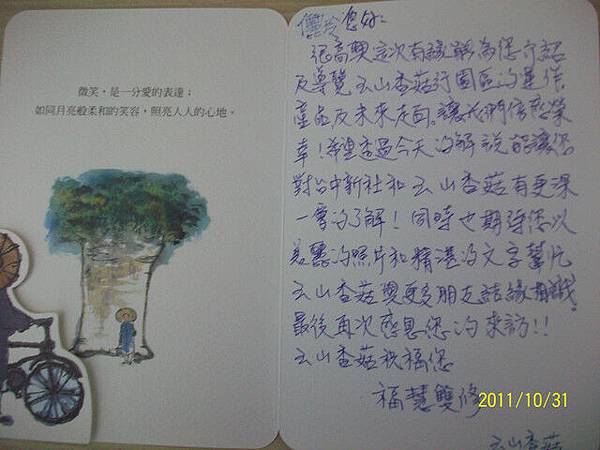 微笑，是一分愛的表達；
如同月亮般柔和的笑容，照亮人人的心地。
您好：
很高興這次有緣能為您介紹
及導覽云山香菇行園區的運作、
產品及未來走向。讓我們倍感榮
幸！希望透過今天的解說能讓您
對台中新社和云山香菇有更深
一層的了解！同時也期待您以
美麗的照片和精湛的文字幫忙
云山香菇與更多朋友結緣相識。
最後再次感恩您的來訪!!
云山香菇祝福您
福慧雙修
2011/10/31
云山香菇